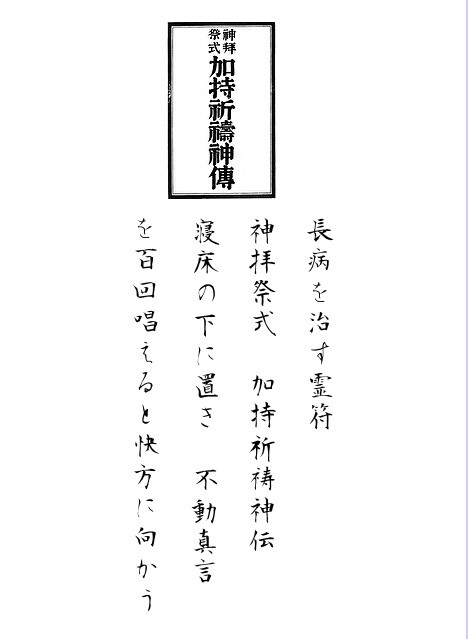 神拜
祭式
加持祈禱神傳
長病を治す霊符
神拝祭式 加持祈祷神伝
寝床の下に置き 不動真言
を百回唱えると快方に向かう